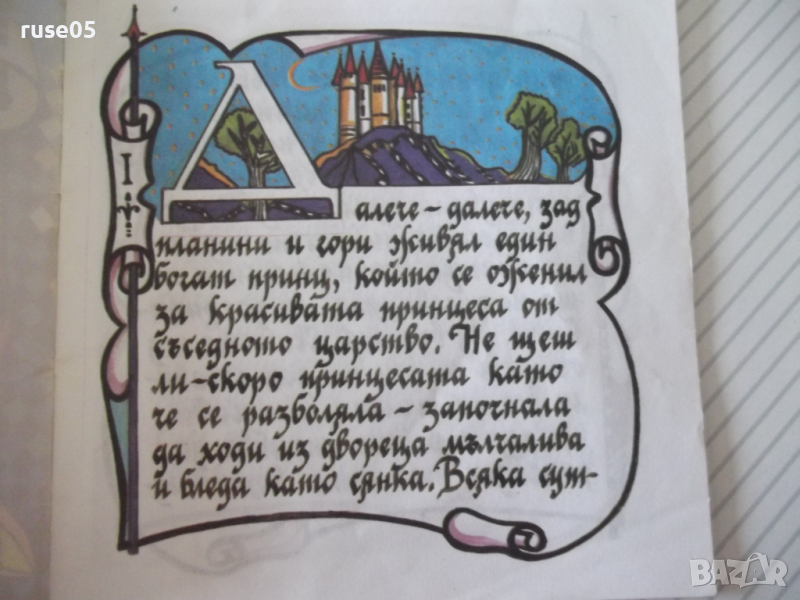 ruse05
I
Далече – далече, зад
планини и гори живял един
богат принц, който се оженил
за красивата принцеса от
съседното царство. Не щеш
ли – скоро принцесата като
че се разболяла – започнала
да ходи из двореца мълчалива
и бледа като сянка. Всяка сут-
BAZAR
www.Bazar.bg